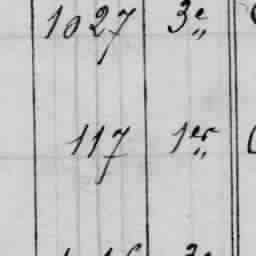 1027 3e„
117 1er„